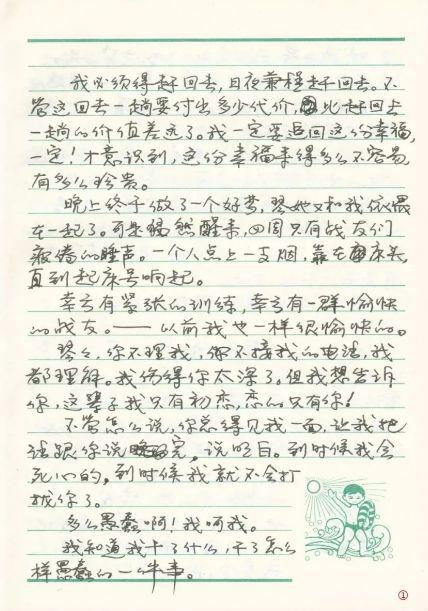 我必须得赶回去,日夜兼程赶回去。不
管这回去一趟要付出多少代价,比赶回去
一趟的价值差远了。我一定要追回这份幸福,
一定!才意识到,这份幸福来得多么不容易,
有多么珍贵。
晚上终于做了一个好梦,琴她又和我依偎
在一起了。可是猛然醒来,四周只有战友们
疲倦的鼾声。一个人点上一支烟,靠在床头
直到起床号响起。
幸亏有紧张的训练,幸亏有一群愉快
的战友。——以前我也一样很愉快的。
琴,你不理我,你不接我的电话,我
都理解。我伤得你太深了。但我想告诉
你,这辈子我只有初恋,恋的只有你!
不管怎么说,你总得见我一面,让我把
话跟你说完,说明白。到时候我会
死心的,到时候我就不会打
扰你了。
多么愚蠢啊!我呵我。
我知道我干了什么,干了怎么
样愚蠢的一件事。
①